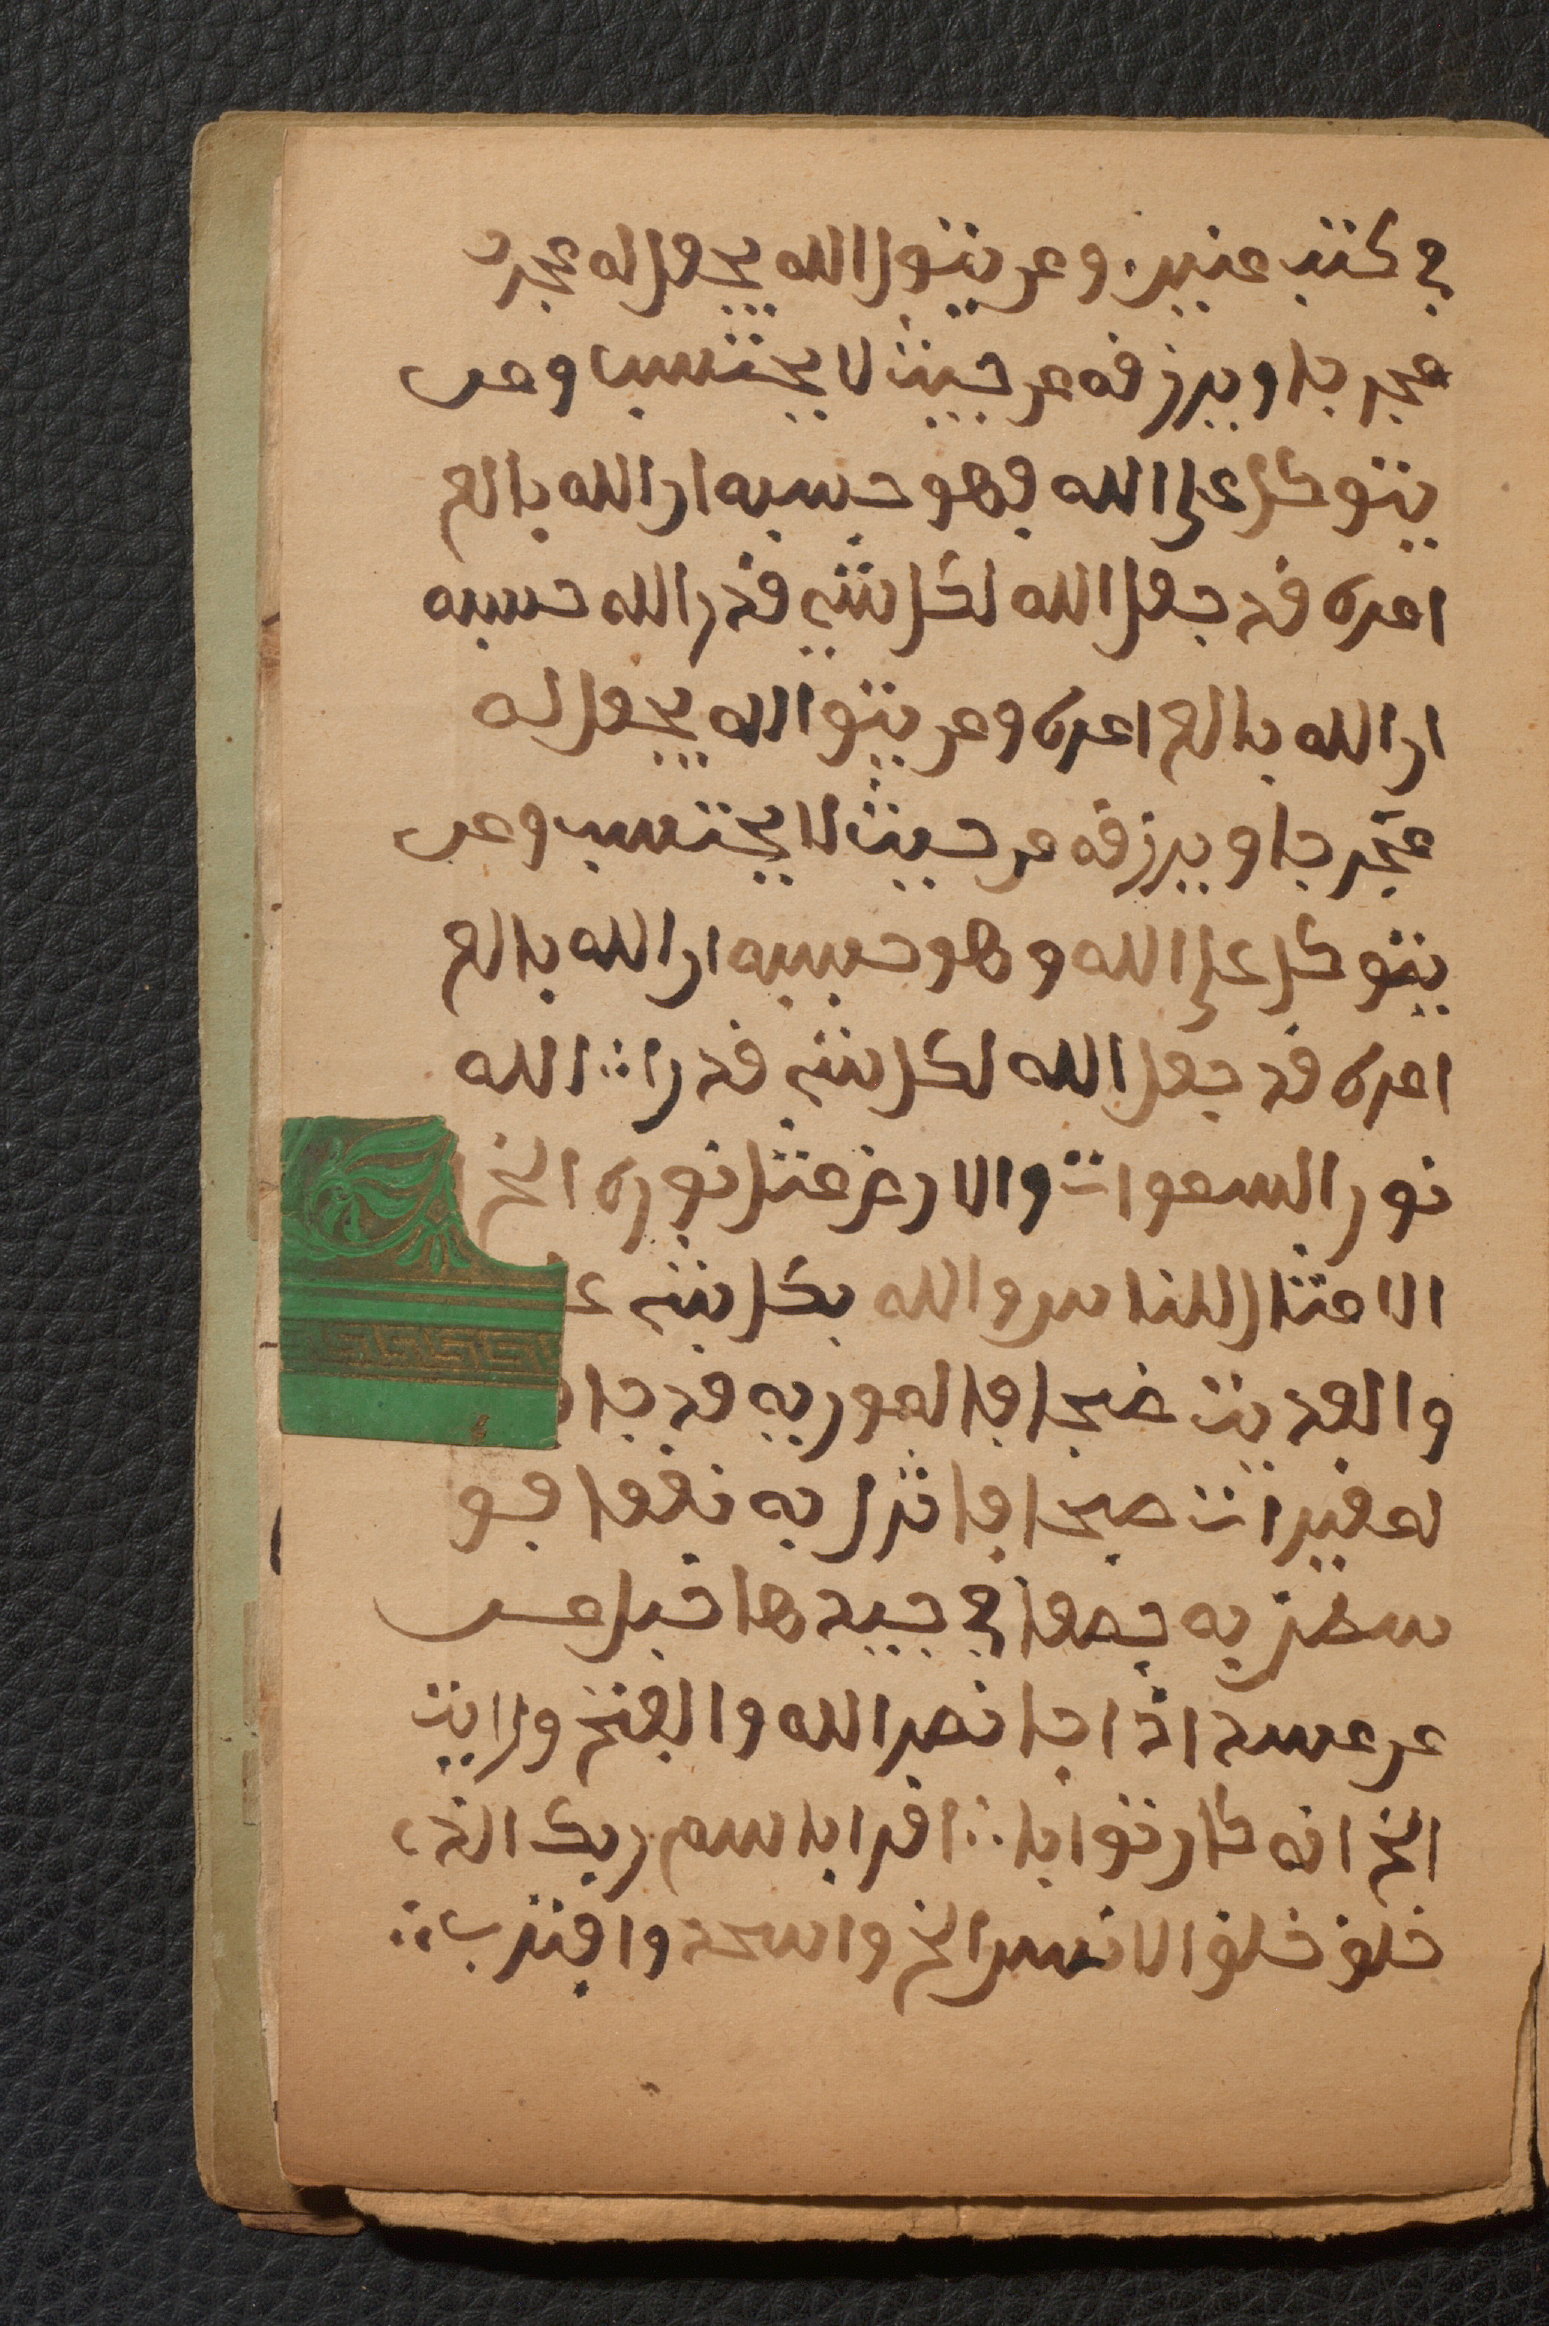 في كتب مبين ومن يتق الله يجعل له مجر
مجرجا ويرزقه من حيث لا يحتسب ومن
يتوكل على الله فهو حسبه ان الله بالع
امره قد جعل الله لكل شيء قدر الله حسبه
ان الله بالع امره ومن يتو الله يجعل له
مخرجا ويرزقه من حيث لا يحتسب ومن
يتوكل على الله وهو حسبه ان الله بالع
امره قد جعل الله لكل شيء قدرا ∴ الله
نور السموات والارض مثل نوره الخ
الامثال للناس والله بكل شيء
والعديت ضبحا فالموريه قدحا
لمغيرات صبحا فاثرن به نقعا فو
سطن به جمعا في جيدها حبل مس
من مسد اذا جا نصر الله والفتح ورايت
الخ انه كان توابا ∴ اقرا باسم ربك الذي
خلق خلق الانسن الخ واسجد واقترب ∴